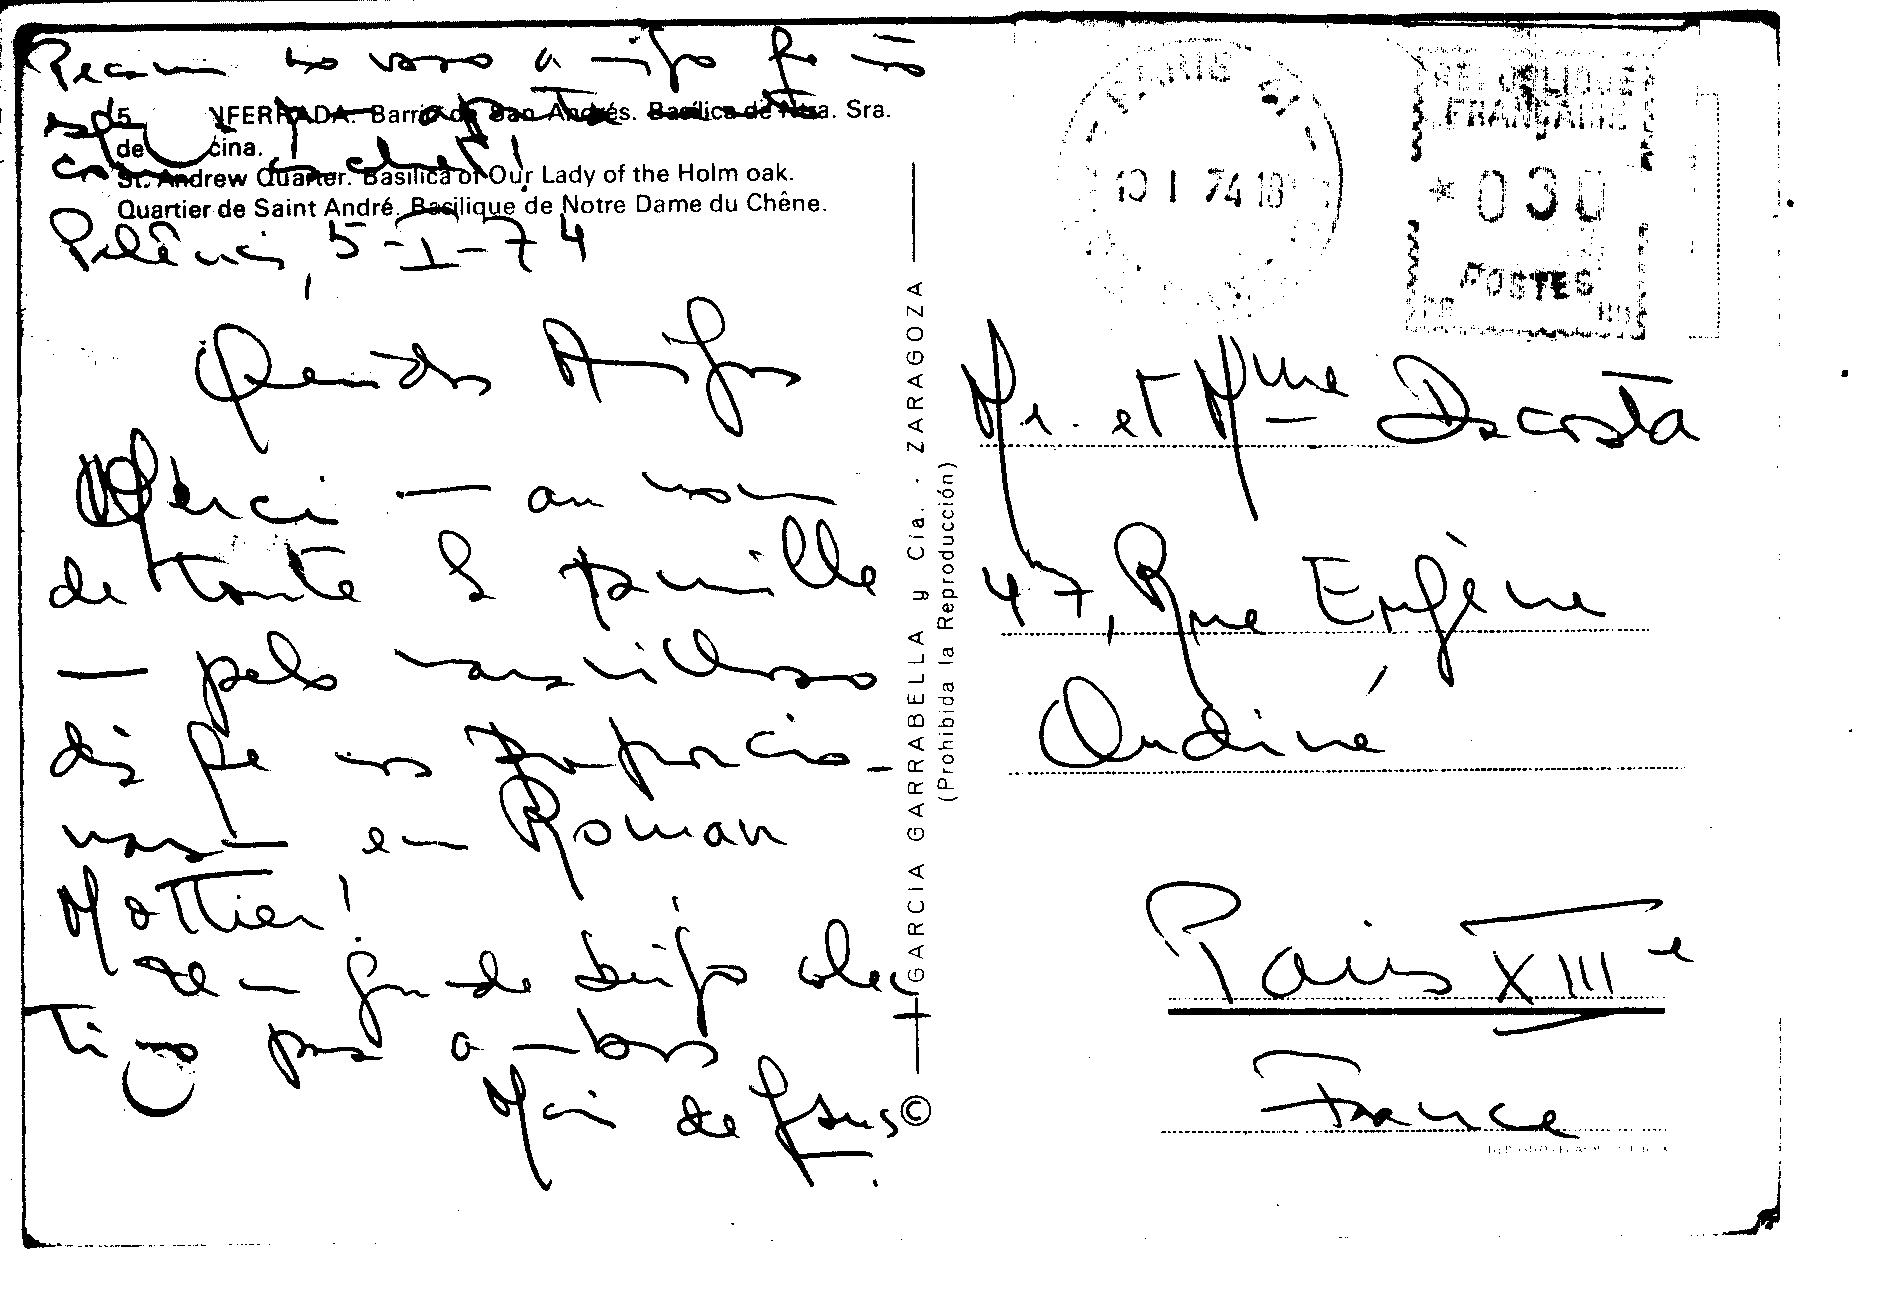 vosso amigo que nos
5 NFERRADA. Barrio de San Andrés. Basílica de Ntra. Sra.
de cina.
St. Andrew Quarter. Basilica of Our Lady of the Holm oak.
Quartier de Saint André. Basilique de Notre Dame du Chêne.
5-I-74
Queridos Amigos
Merci — au nom
de toute la famille
— pelo maravilhoso
dia que nos proporcio-
naram em Roman
Mottier!
Um grande beijo colec
tivo para ambos
Mari de Jesus
© GARCIA GARRABELLA y Cía. - ZARAGOZA
(Prohibida la Reproducción)
PARIS
10 I 74 18
REPUBLIQUE
FRANÇAISE
* 030
POSTES
Mr. et Mme Dacosta
47, Rue Eugène
Oudiné
Paris XIIIe
France